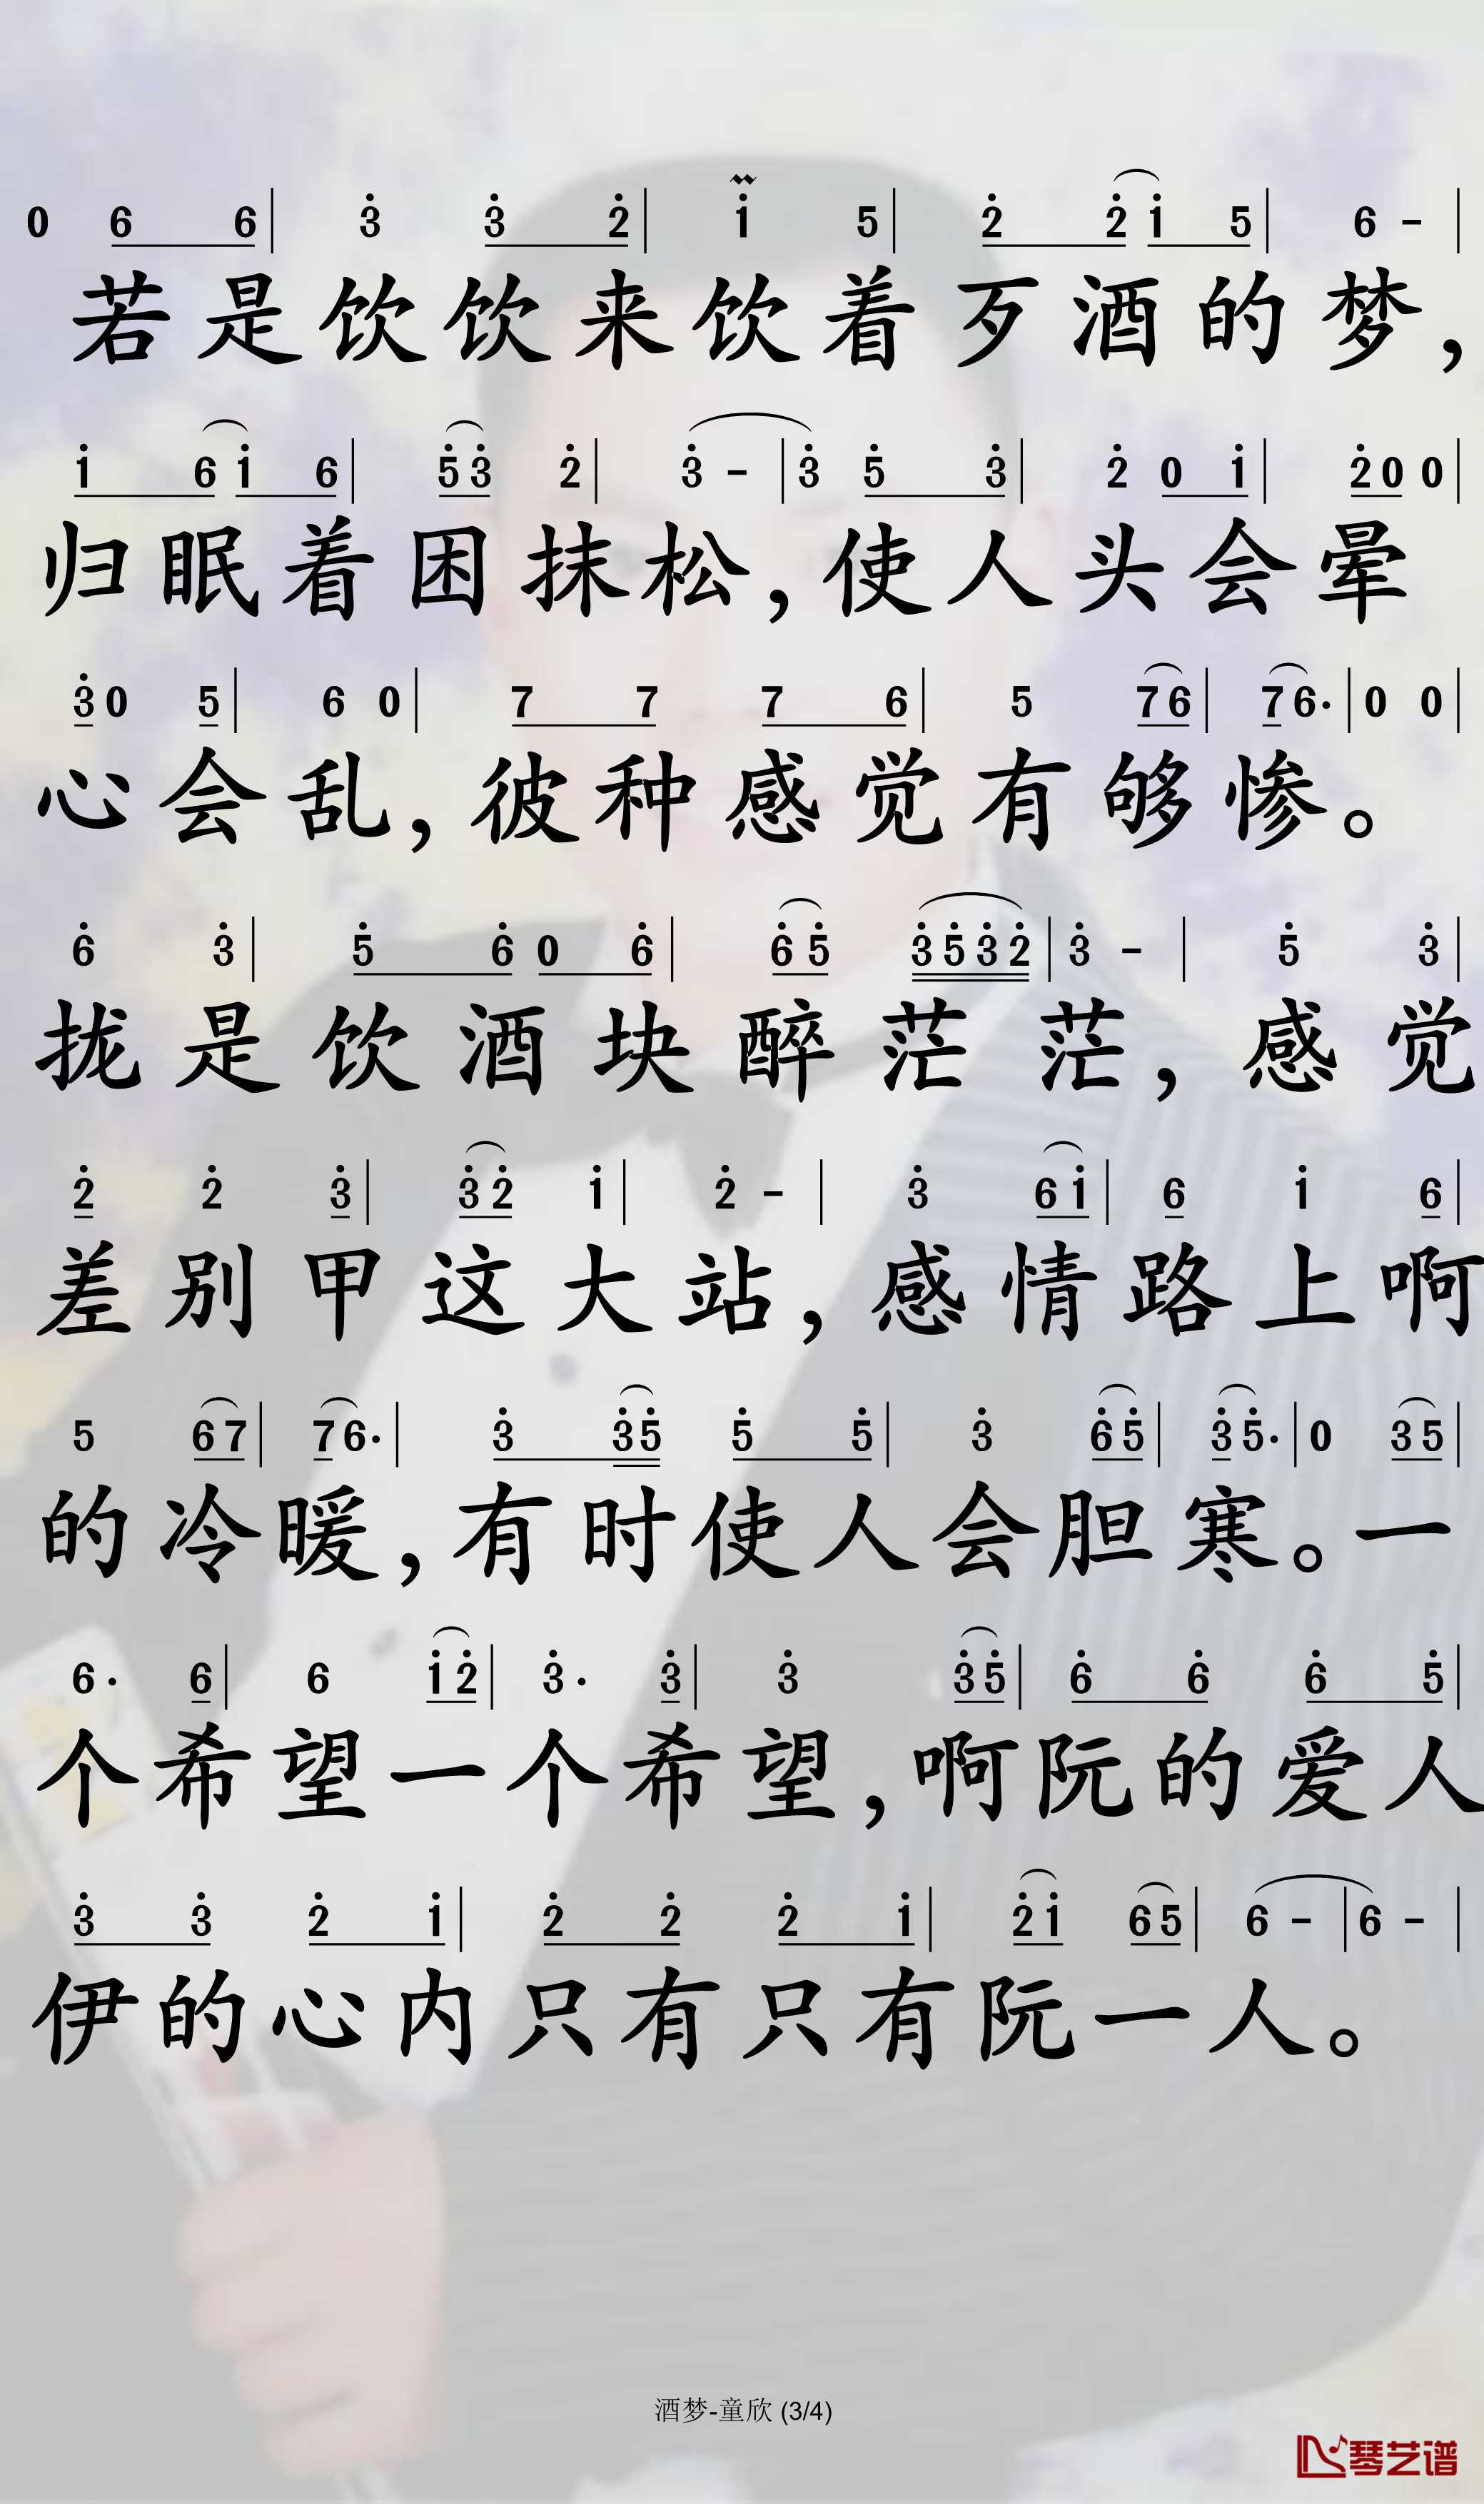 0 6 6 | 3̇ 3̇ 2̇ | 1̇ 5 | 2̇ 2̇ 1̇ 5 | 6 – |
若是饮饮来饮着歹酒的梦，
1̇ 6 1̇ 6 | 5̇ 3̇ 2̇ | 3̇ – | 3̇ 5̇ 3̇ | 2̇ 0 1̇ | 2̇ 0 0 |
归眠着困抹松，使人头会晕
3̇ 0 5 | 6 0 | 7 7 7 6 | 5 7 6 | 7 6· | 0 0 |
心会乱，彼种感觉有够惨。
6̇ 3̇ | 5̇ 6̇ 0 6̇ | 6̇ 5̇ 3̇ 5̇ 3̇ 2̇ | 3̇ – | 5̇ 3̇ |
拢是饮酒块醉茫茫，感觉
2̇ 2̇ 3̇ | 3̇ 2̇ 1̇ | 2̇ – | 3̇ 6 1̇ | 6 1̇ 6 |
差别甲这大站，感情路上啊
5 6 7 | 7 6· | 3̇ 3̇ 5̇ 5̇ 5̇ | 3̇ 6̇ 5̇ | 3̇ 5̇· | 0 3 5 |
的冷暖，有时使人会胆寒。一
6· 6 | 6 1̇ 2̇ | 3̇· 3̇ | 3̇ 3̇ 5̇ | 6̇ 6̇ 6̇ 5̇ |
个希望一个希望，啊阮的爱人
3̇ 3̇ 2̇ 1̇ | 2̇ 2̇ 2̇ 1̇ | 2̇ 1̇ 6 5 | 6 – | 6 – |
伊的心内只有只有阮一人。
酒梦-童欣 (3/4)
琴艺谱